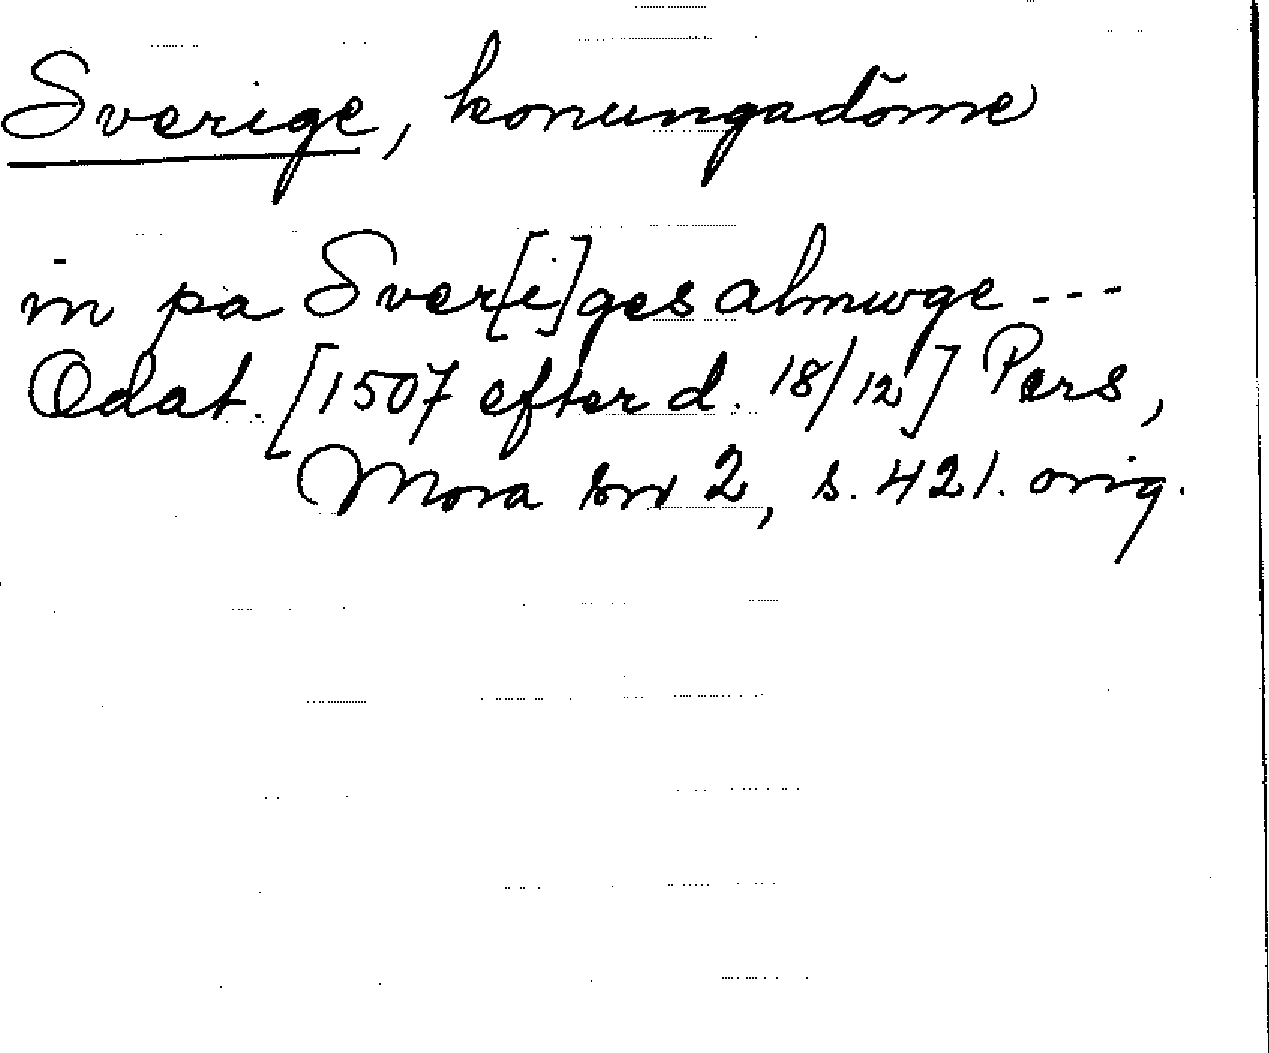 Sverige, konungadöme
in pa Sver[i]ges almwge ---
Odat. [1507 efter d. 18/12] Pers,
Mora 2, s. 421. orig.